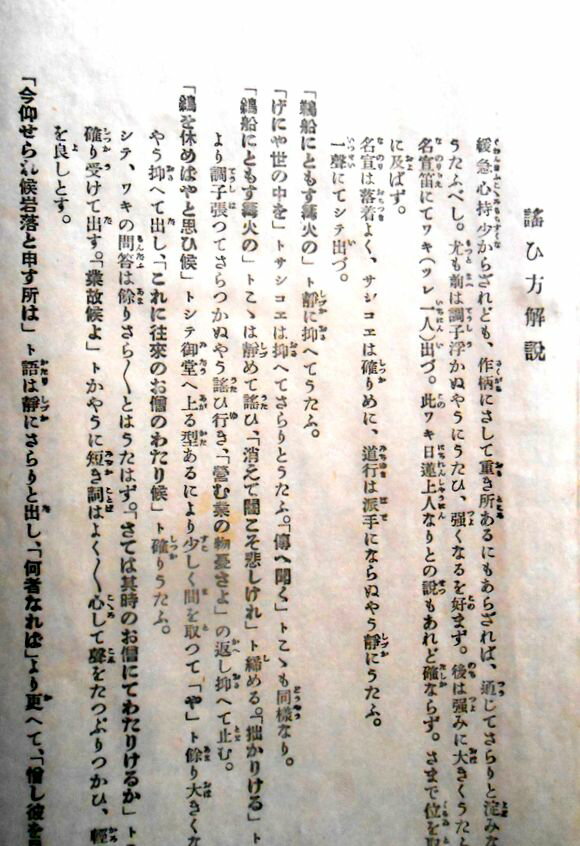 謠ひ方解説
緩急心持少からざれども、作柄にさして重き所あるにもあらざれば、通じてさらりと淀みな
うたふべし。尤も前は調子浮かぬやうにうたひ、强くなるを好まず。後は强みに大きくうた
名宣笛にてワキ(ツレ一人)出づ。此ワキ日蓮上人なりとの説もあれど確ならず。さまで位を取
に及ばず。
名宣は落着よく、サシコエは確りめに、道行は派手にならぬやう靜にうたふ。
一聲にてシテ出づ。
「鵜船にともす篝火の」ト靜に抑へてうたふ。
「げにや世の中を」トサシコエは抑へてさらりとうたふ。「傳へ聞く」トこゝも同樣なり。
「鵜船にともす篝火の」トこゝは靜めて謠ひ、「消えて闇こそ悲しけれ」ト締める。「拙かりける」ト
より調子張つてさらつかぬやう謠ひ行き、「營む業の物憂さよ」の返し抑へて止む。
「鵜を休めばやと思ひ候」トシテ御堂へ上る型あるにより少しく間を取つて「や」ト餘り大きくな
やう抑へて出し、「これに往來のお僧のわたり候」ト確りうたふ。
シテ、ワキの問答は餘りさら〱とはうたはず。「さては其時のお僧にてわたりけるか」トの
確り受けて出す。「業故候よ」トかやうに短き詞はよく〱心して聲をたつぷりつかひ、輕
を良しとす。
「今仰せられ候岩落と申す所は」ト語は靜にさらりと出し、「何者なれば」より更へて、「憎し彼を見